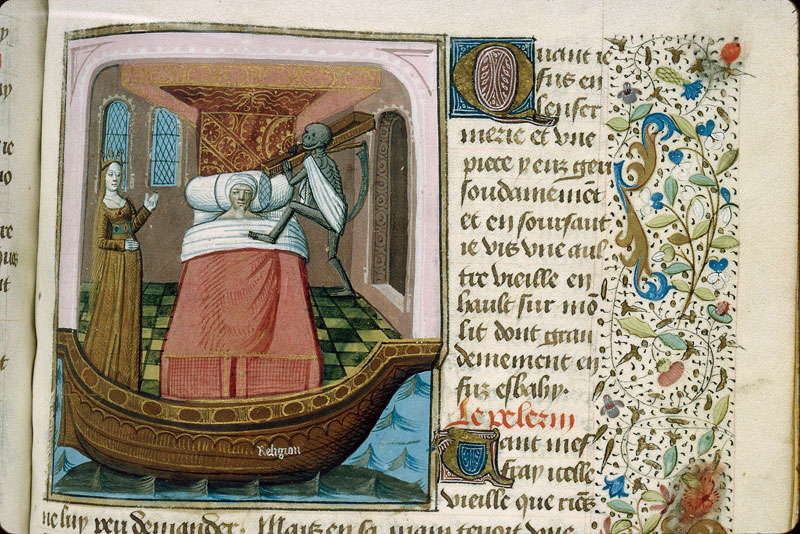 Religion
Quant ie
fus en
lenfer
merie et vne
piece y euz geu
soudainement
et en soursaut
ie vis vne aul
tre vieille en
hault sur mō
lit dont gran
demement en
fuz esbahy.
Le pelerin
Tant mef
fray icelle
vieille que riēs
ne luy peu demander. Mais en sa main tenoit vne